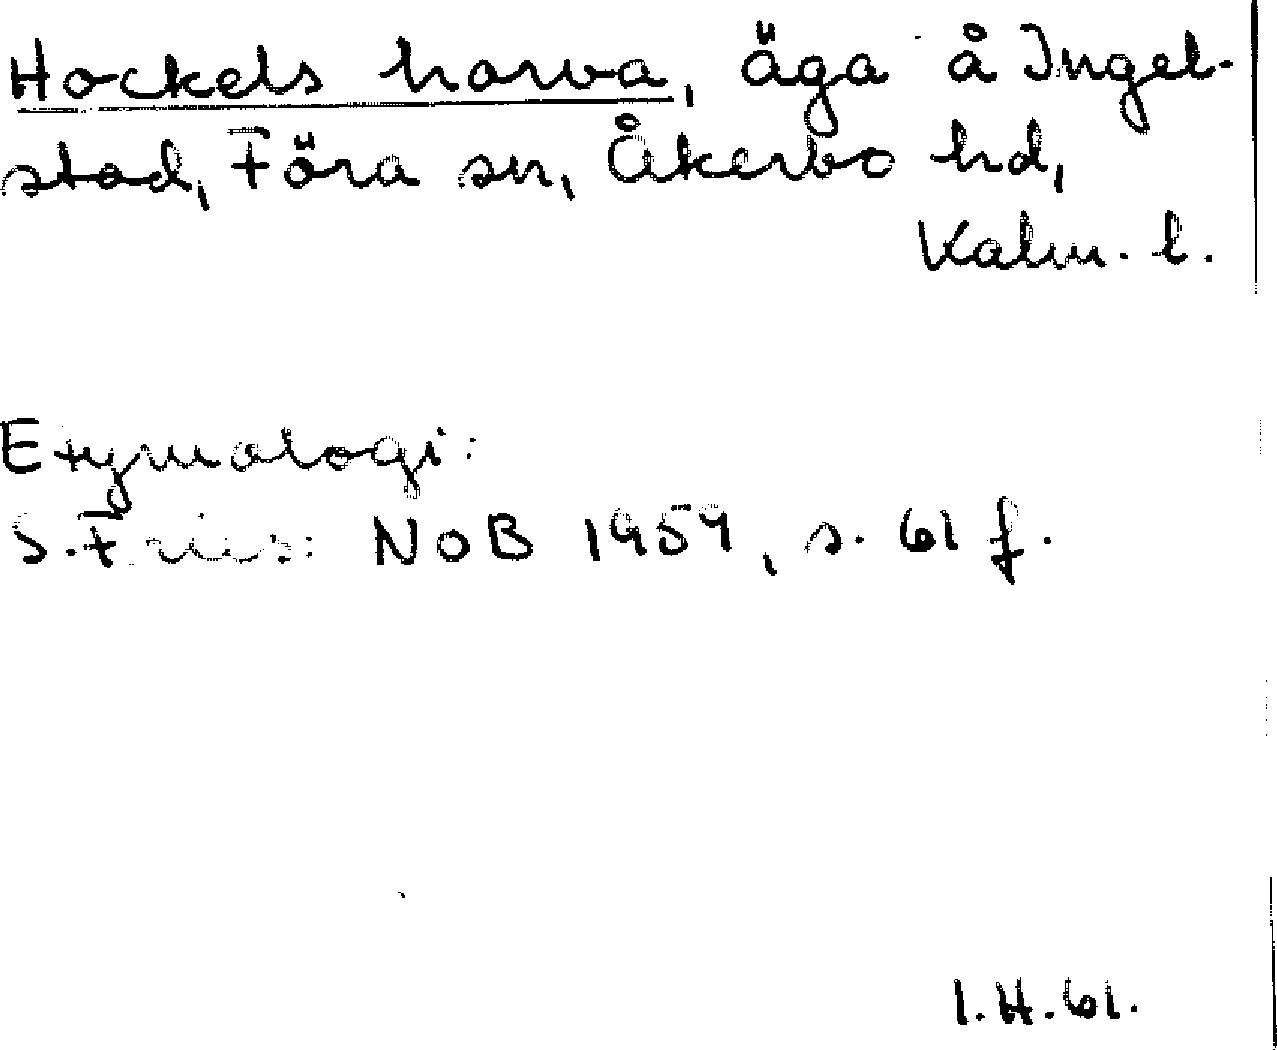 Hockels horva, äga å Ingel-
stad, Föra sn, Åkerbo hd,
Kalm. l.
Etymologi:
S. Fries: NoB 1959, s. 61 f.
I.H.61.